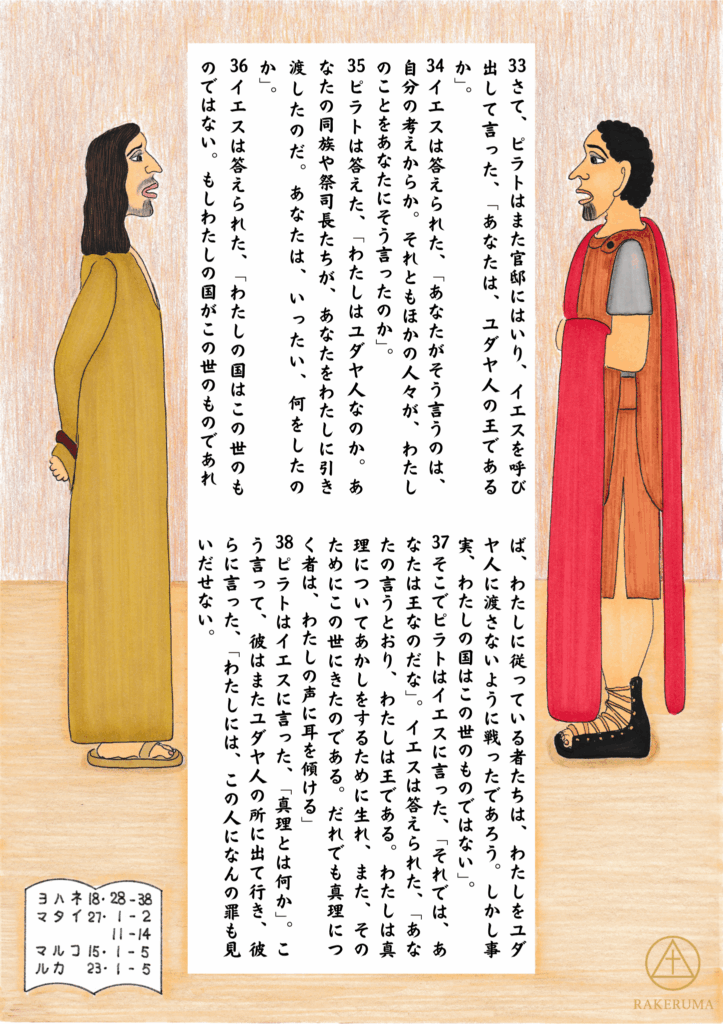 33さて、ピラトはまた官邸にはいり、イエスを呼び
出して言った、「あなたは、ユダヤ人の王である
か」。
34イエスは答えられた、「あなたがそう言うのは、
自分の考えからか。それともほかの人々が、わたし
のことをあなたにそう言ったのか」。
35ピラトは答えた、「わたしはユダヤ人なのか。あ
なたの同族や祭司長たちが、あなたをわたしに引き
渡したのだ。あなたは、いったい、何をしたの
か」。
36イエスは答えられた、「わたしの国はこの世のも
のではない。もしわたしの国がこの世のものであれ
ば、わたしに従っている者たちは、わたしをユダ
ヤ人に渡さないように戦ったであろう。しかし事
実、わたしの国はこの世のものではない」。
37そこでピラトはイエスに言った、「それでは、あ
なたは王なのだな」。イエスは答えられた、「あな
たの言うとおり、わたしは王である。わたしは真
理についてあかしをするために生れ、また、その
ためにこの世にきたのである。だれでも真理につ
く者は、わたしの声に耳を傾ける」
38ピラトはイエスに言った、「真理とは何か」。こ
う言って、彼はまたユダヤ人の所に出て行き、彼
らに言った、「わたしには、この人になんの罪も見
いだせない。
ヨハネ18・28-38
マタイ27・1-2
11-14
マルコ15・1-5
ルカ 23・1-5
RAKERUMA